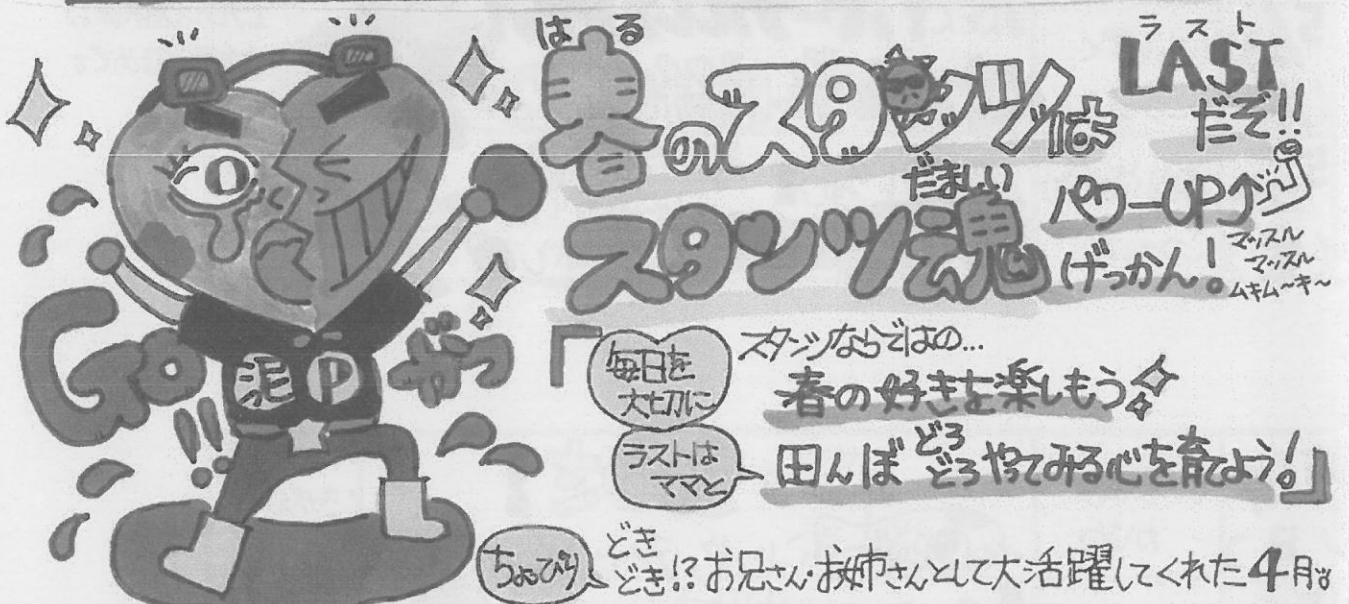 はる
春のスタンツは
ラスト
LASTだぞ!!
だましい
スタンツ魂
パワーUP↑
げっかん!
マッスル
マッスル
ムキム〜キ〜
Goがつ!!
泥P
「毎日を
大切に
スタンツならではの…
春の好きを楽しもう
ラストは
ママと
田んぼどろどろやってみる心を育てよう!」
ちょっぴり
どきどき!?お兄さん・お姉さんとして大活躍してくれた4月。